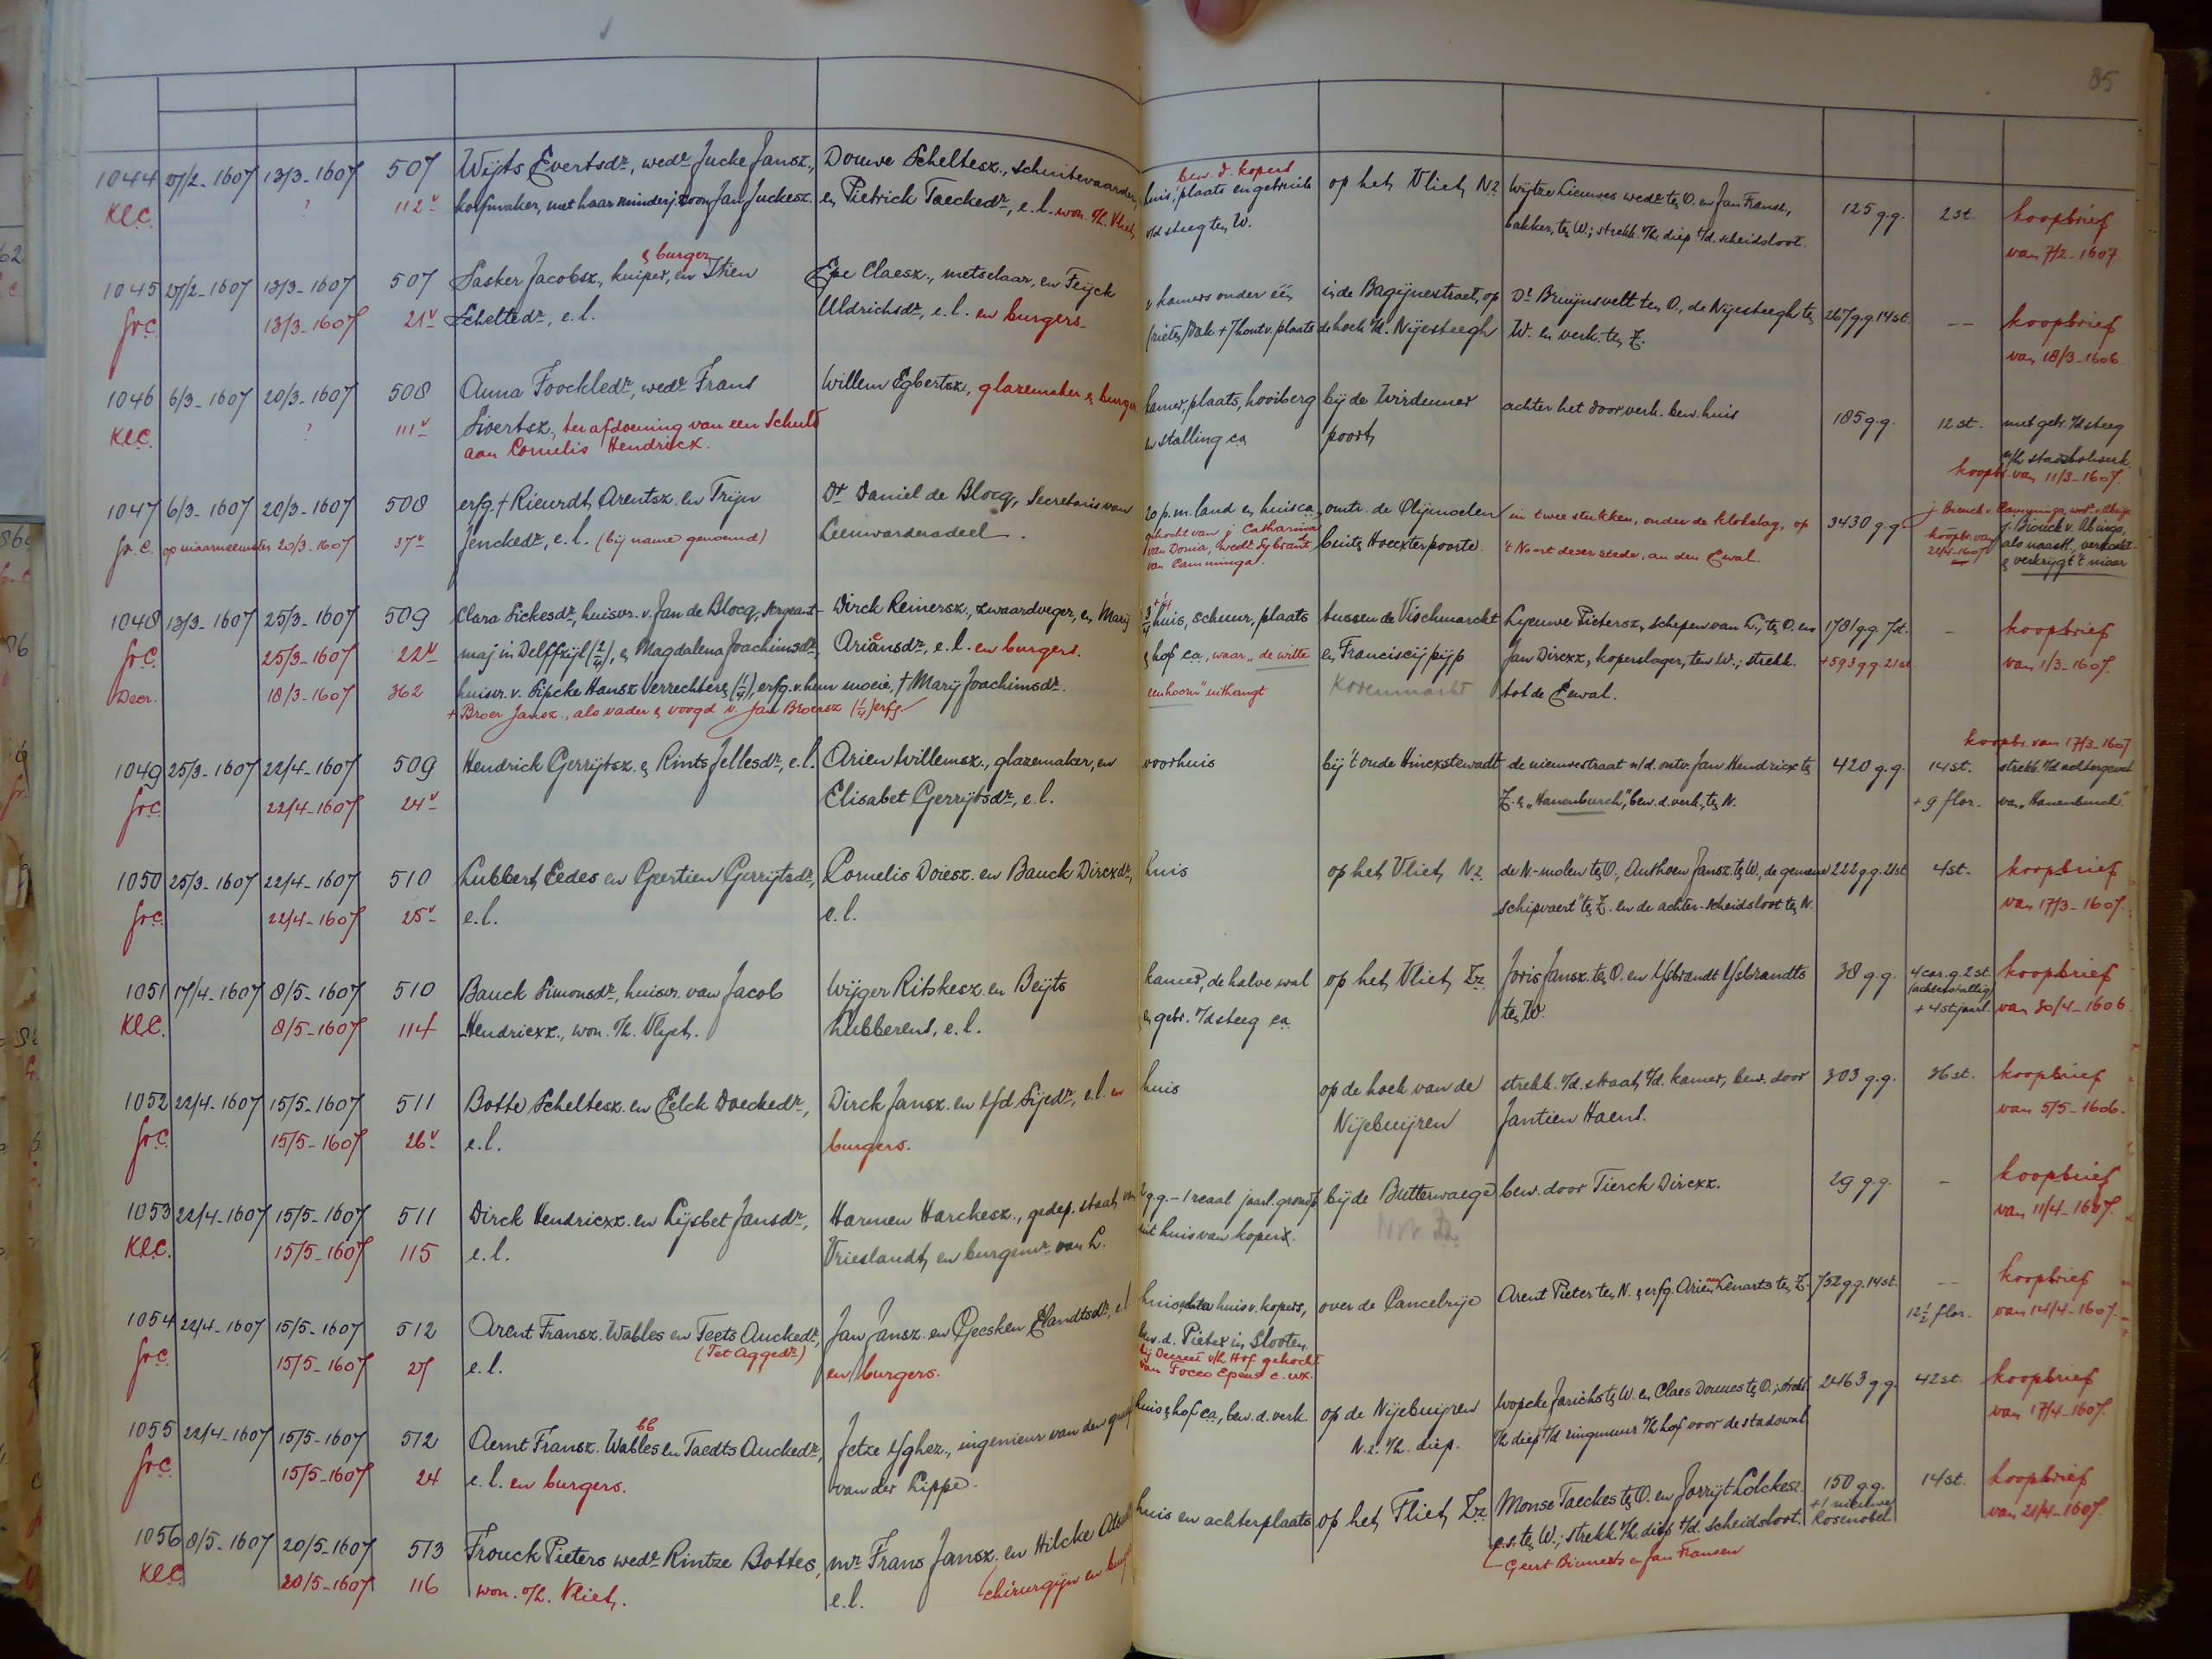 85
1044 27/2-1607 13/3-1607 507 Wijts Evertsdr, wedr Jucke Jansz., Douwe Scheltesz., schuitevaarder,
bew. d. kopers
huis, plaats en gebruik op het Vliet Nz Wijtze Lieuwes wedr ten O. en Jan Fransz., 125 g.g. 2 st. koopbrief
Kl.C. ? 112v korfmaker, met haar minderj. zoon Jan Juckesz. en Pietrick Taeckedr, e.l. won. o/h. Vliet,
v/d steeg ten W. bakker, ten W.; strekk. v/h. diep t/d. scheidsloot. van 7/2-1607
& burger
1045 27/2-1607 13/3-1607 507 Sasker Jacobsz., kuiper, en Ithien Epe Claesz., metselaar, en Feijck
v kamers onder één in de Bagijnestraet, op Dr Bruijnsvelt ten O., de Nijesteegh ten 267 g.g. 14 st. — koopbrief
Gr.C. 13/3-1607 21v Scheltedr, e.l. Uldrichsdr, e.l. en burgers.
(rieten) dak + 7 hout v. plaats de hoek v/d. Nijesteegh W. en verk. ten Z. van 18/3-1606
1046 6/3-1607 20/3-1607 508 Anna Foockledr, wedr Frans Willem Egbertsz., glazemaker & burger
kamer, plaats, hooiberg bij de Wirdeumer achter het door verk. bew. huis 185 g.g. 12 st. met gebr. v/d steeg
Kl.C. ? 111v Sivertsz., ter afdoening van een schuld
aan Cornelis Hendricx.
en stalling ca poort n/h stadsbolwerk.
koopbr. van 11/3-1607.
1047 6/3-1607 20/3-1607 508 erfg. † Rieurdt Arentsz. en Trijn Dr Daniel de Blocq, Secretaris van
20 p.m. land en huis ca omtr. de Olijmoelen in twee stukken, onder de klokslag, op 3430 g.g.
Gr.C. op niaarneemster 20/3-1607 37v Jenckedr, e.l. (bij name genoemd) Leeuwarderadeel.
gekocht van j. Catharina
van Donia, wedr Sybrant
van Camminga.
buiten Hoecxterpoorte. 't Noort deser stede, aan den Ewal.
koopbr. van
21/4-1607
als naastl., versoekt
& verkrijgt 't niaar
1048 13/3-1607 25/3-1607 509 Clara Sickesdr, huisvr. v. Jan de Blocq, sergeant- Dirck Reinersz., zwaardveger, en Marij
3/4 + 1/4 huis, schuur, plaats tussen de Vischmarckt Lyeuwe Pietersz., schepen van L., ten O. en 1781 g.g. 7 st. - koopbrief
Gr.C. 25/3-1607 22v maj. in Delffzijl (2/4), en Magdalena Joachimsdr, Ariaensdr, e.l. en burgers.
& hof ca, waar „de witte en Franciscij pijp Jan Dircxz., koperslager, ten W.; strekk. + 593 g.g. 21 st. van 1/3-1607.
Decr. 18/3-1607 362 huisvr. v. Sipcke Hansz Verrechters (1/4), erfg. v. hun moeie, † Marij Joachimsdr.
eenhoorn" uithangt Korenmarkt tot de Ewal.
+ Broer Jansz., als vader & voogd v. Jan Broersz (1/4) erfg.
koopbr. van 17/3-1607
1049 25/3-1607 22/4-1607 509 Hendrick Gerrijtsz. & Rints Jellesdr, e.l. Arien Willemsz., glazemaker, en
voorhuis bij 't oude Hinxstewadt de nieuwestraat n/d. ontv. Jan Hendricx ten 420 g.g. 14 st. strekk. t/d achtergevel
Gr.C. 22/4-1607 24v Elisabet Gerrijtsdr, e.l.
Z. & „Hanenburch", bew. d. verk., ten N. + 9 flor. van „Hanenburch".
1050 25/3-1607 22/4-1607 510 Lubbert Eedes en Geertien Gerrijtsdr, Cornelis Doiesz. en Bauck Dircxdr,
huis op het Vliet Nz de N.-molen ten O., Anthoen Jansz. ten W., de gemene 222 g.g. 21 st 4 st. koopbrief
Gr.C. 22/4-1607 25v e.l. e.l.
„schipvaert" ten Z. en de achter-scheidsloot ten N. van 17/3-1607.
1051 17/4-1607 8/5-1607 510 Bauck Simonsdr, huisvr. van Jacob Wijger Ritskesz en Beijts
kamer, de halve wal op het Vliet Zz Joris Jansz. ten O. en IJsbrandt IJsbrandts 38 g.g. 4 car. g. 2 st. koopbrief
(achterstallig)
Kl.C. 8/5-1607 114 Hendricxz., won. o/h. Vlyet. Lubberens, e.l.
en gebr. v/d steeg ca ten W. + 4 st. jaarl. van 30/4-1606.
1052 22/4-1607 15/5-1607 511 Botte Scheltesz. en Eelck Doeckedr, Dirck Jansz. en Yd Sijedr, e.l. en
huis op de hoek van de strekk. v/d. straat t/d. kamer, bew. door 303 g.g. 36 st. koopbrief
Gr.C. 15/5-1607 26v e.l. burgers.
Nijebuijren Jantien Haens. van 5/5-1606.
1053 22/4-1607 15/5-1607 511 Dirck Hendricxz. en Lijsbet Jansdr, Harmen Harckesz., gedep. staat van
2 g.g. - 1 reaal jaarl. grondp. bij de Butterwaege bew. door Tierck Dircxz. 29 g.g. - koopbrief
Kl.C. 15/5-1607 115 e.l. Vrieslandt, en burgemr van L.
uit huis van kopers. van 11/4-1607.
1054 22/4-1607 15/5-1607 512 Arent Fransz. Wables en Teets Auckedr, Jan Jansz. en Geesken Elandtsdr, e.l.
huis, over de Cancelrije Arent Pieter ten N. & erfg. Arien Lenarts ten Z. 752 g.g. 14 st. — koopbrief
(Tet Aggedr)
Gr.C. 15/5-1607 27 e.l. en burgers.
bew. d. Pieter in Slooten. 12 1/2 flor. van 14/4-1607.
bij Decreet v/h Hof gekocht
van Focco Epeus c. ux.
bb
1055 22/4-1607 15/5-1607 512 Aernt Fransz. Wables en Taedts Auckedr, Jetze Yghez., ingenieur van den graaf
huis & hof ca, bew. d. verk. op de Nijebuijren Wopcke Jarichs ten W. en Claes Douwes ten O.; strekk. 2463 g.g. 42 st. koopbrief
Gr.C. 15/5-1607 24 e.l. en burgers. van der Lippe.
N.z. v/h. diep. v/h diep t/d ringmuur v/h hof voor de stadswal van 17/4-1607.
1056 8/5-1607 20/5-1607 513 Frouck Pieters wedr Rintze Bottes, mr Frans Jansz. en Hilcke
huis en achterplaats op het Fliet Zz Monse Taeckes ten O. en Jorrijt Lolckesz. 150 g.g. 14 st. koopbrief
+ 1 nieuwe
Rosenobel
Kl.C. 20/5-1607 116 won. o/h. Vliet. e.l. chirurgijn en
c.s. ten W.; strekk. v/h. diep t/d. scheidsloot. van 21/4-1607.
Geert Binnerts en Jan Fransen